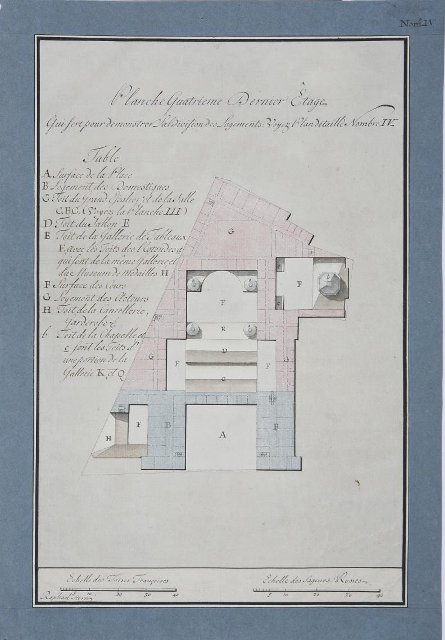 Nom. IV
Planche Quatrieme Dernier Êtage
Qui sert pour demonstrer la division des Logements. Voyez Plan detaillé Nombre IV.
Table
A Surface de la Place
B Logement des Domestiques
C Toit du Grand Escalier et de la Salle
C, B, C, (Voyez la Planche III)
D Toit du Sallon E
E Toit de la Gallerie de Tableaux
F avec les Toits des Rotondes q
qui sont de la même Gallerie et
du Museum de Medailles H
F Surface des Cours
G Logement des Acteurs
H Toit de la Cancellerie,
Garderobe
b Toit de la Chapelle et
c sont les Toits d'
une portion de la
Gallerie K, et Q
G
F
F
E
D
C
G
G
F
F
H
F
B
A
B
Echelle des Toises Françoises
10 20 30 40
Echelle des Sagenes Russes
5 10 20 30 40